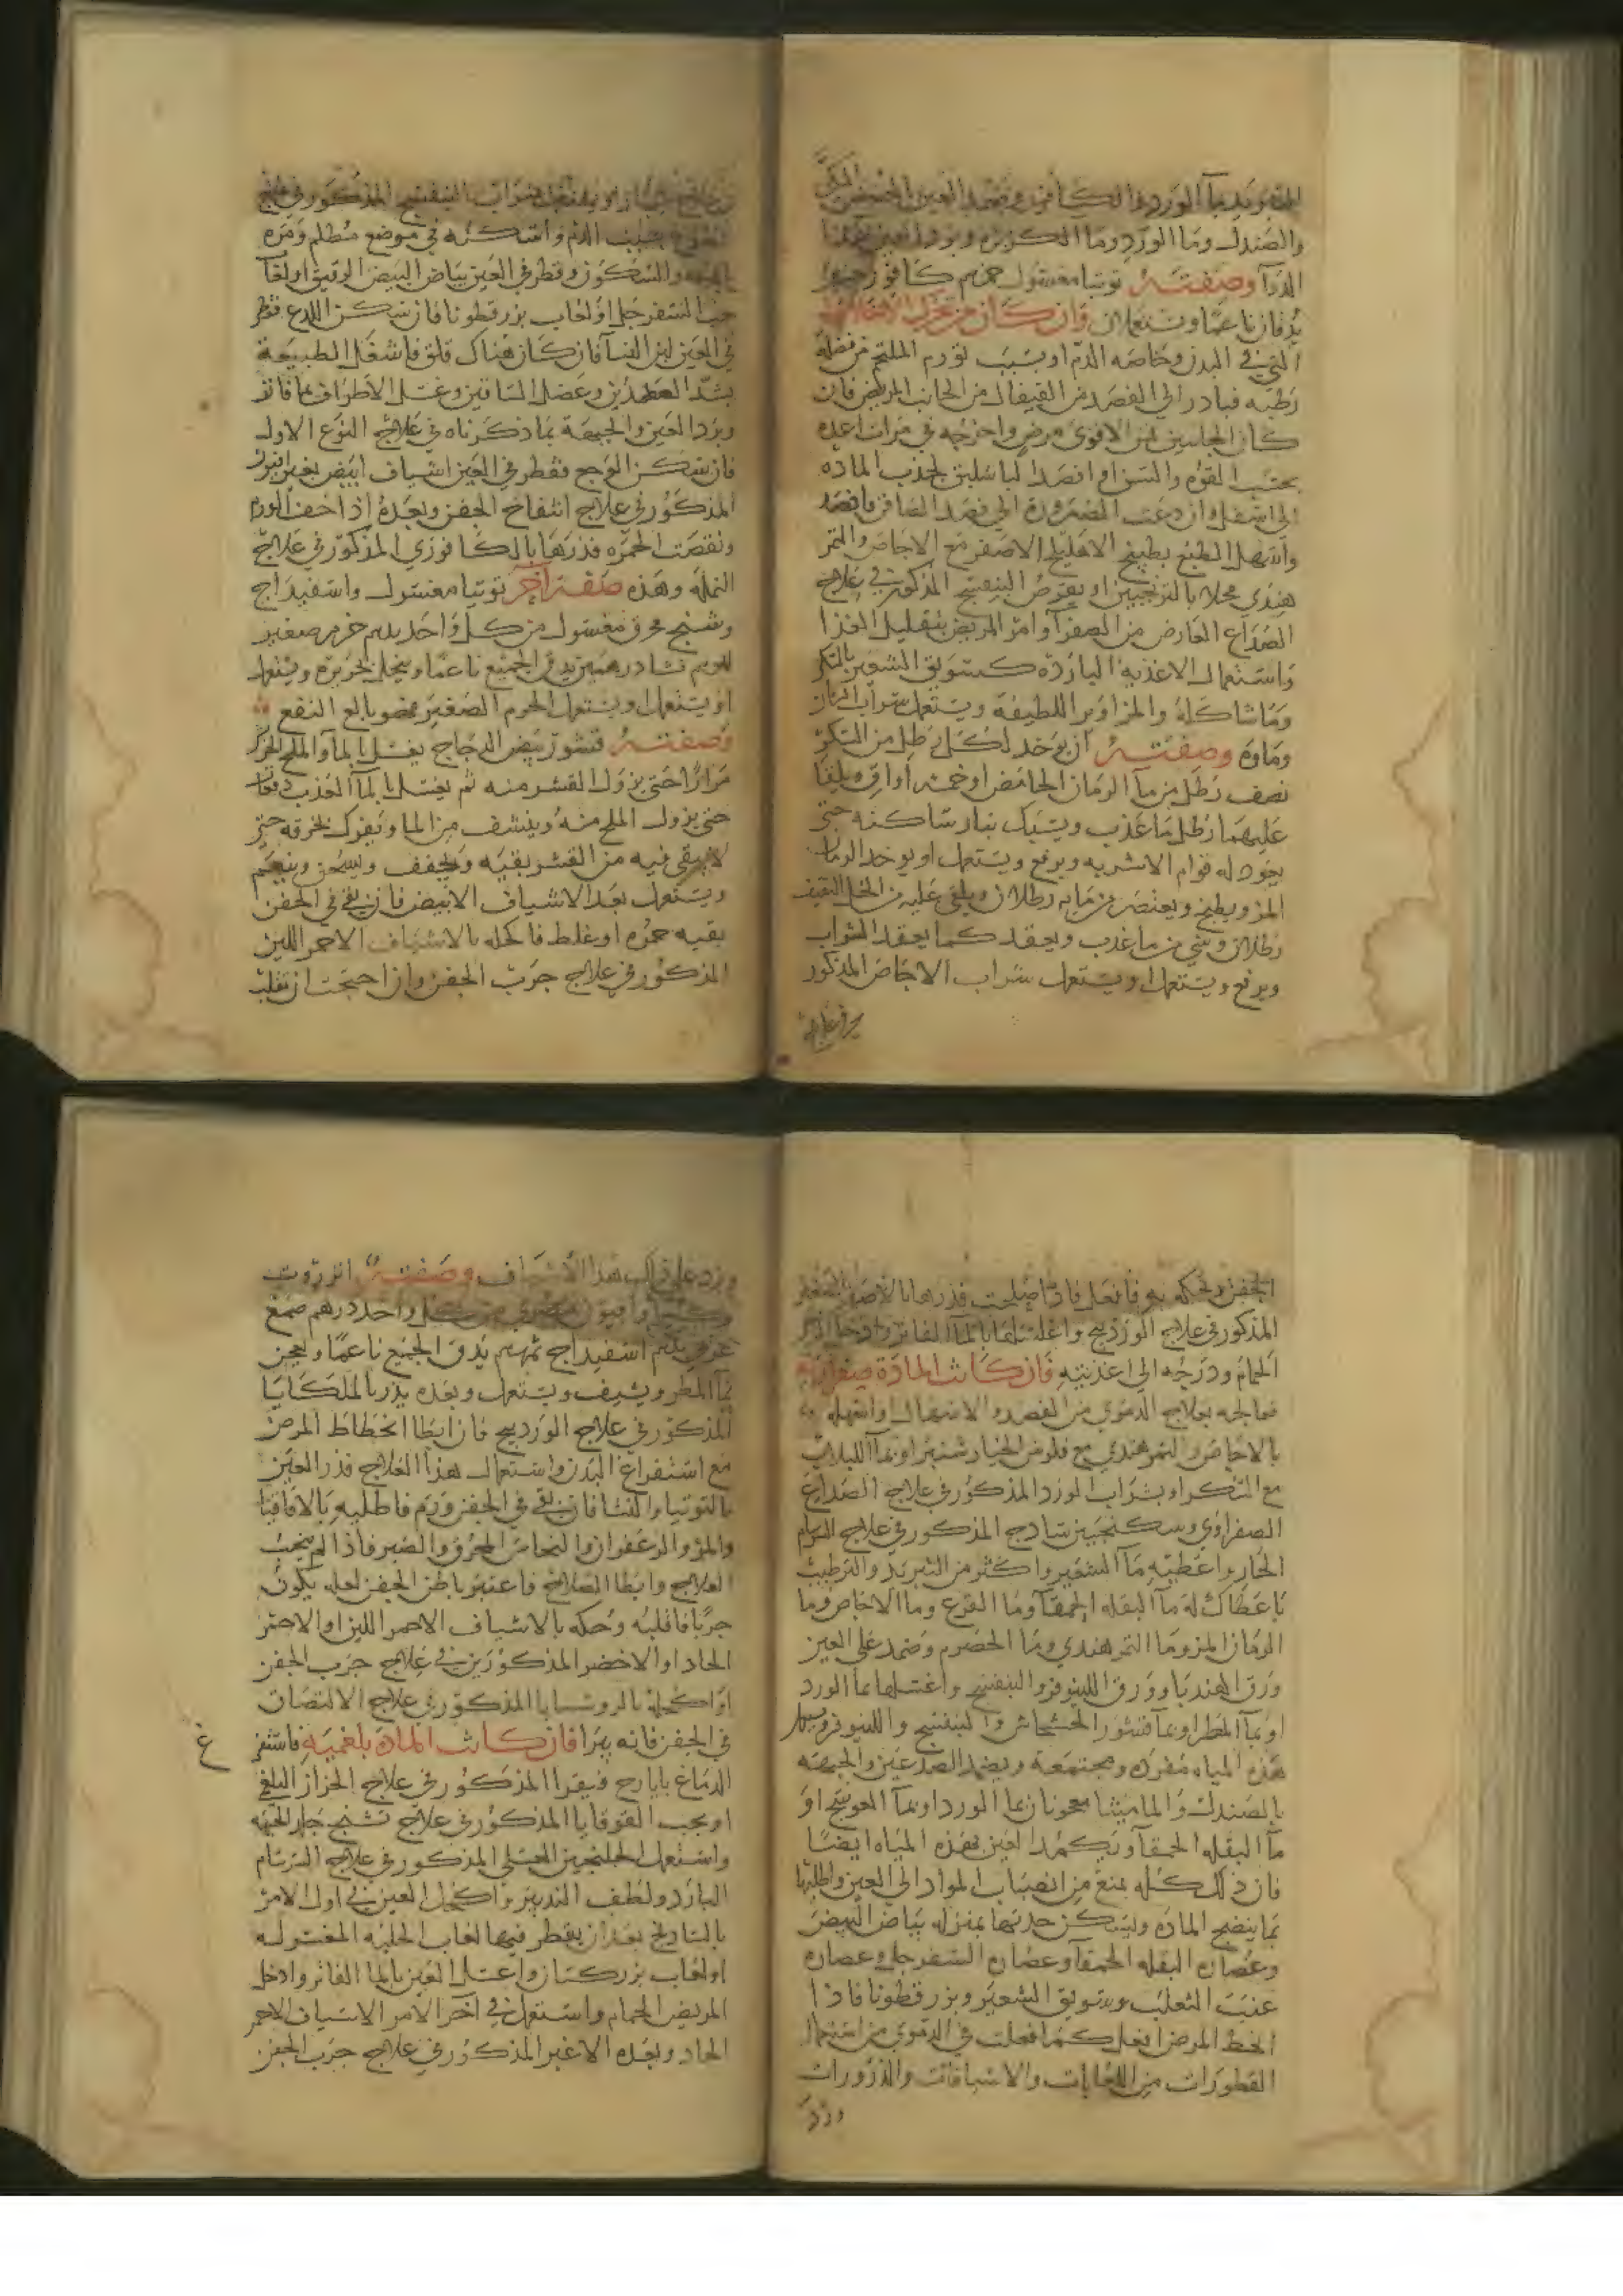 والصندل وما الورد وما الكزبره وبرد العين بهذا
الذرآ وصفته توتيا مغسول كافور
يدقان ناعما ويستعملان فان كان من
التي في البدن وخاصه الدم او بسبب تورم الملتحم من فضله
رطبه فبادر الي الفصد من القيفال من الجانب المريض فان
كان الجانبين فمن الاقوي مرض واخرجه في مرات عده
بحسب القوه والسن او افصد الباسليق لجذب الماده
الي اسفل وان دعت الضروره الي فصد الصافن فافصد
واسهل الطبع بطبيخ الاهليلج الاصفر مع الاجاص والتمر
هندي محلا بالترنجبين او بقرص البنفسج المذكور في علاج
الصداع العارض من الصفرآ وامر المريض بتقليل الغذا
واستعمال الاغذيه البارده كسويق الشعير بالسكر
وما شاكله والمزاوير اللطيفه ويستعمل شراب الرمان
وماوه وصفته ان يوخد لكل رطل من السكر
نصف رطل من مآ الرمان الحامض او خمسه اواق ويلقا
عليهما رطل ما عذب ويسبك بنار ساكنه حتي
يجود له قوام الاشربه ويرفع ويستعمل او يوخد الرمان
المز ويطبخ ويعتصر من مايه رطلان ويلقي عليه من الخل الثقيف
رطلان وشي من ما عذب ويعقد كما يعقد الشراب
ويرفع ويستعمل او يستعمل شراب الاجاص المذكور
في علاج
بسبب الدم واسكنه في موضع مظلم ومره
والسكون وقطر في العين بياض البيض الرقيق او لعاب
حب السفرجل او لعاب بزر قطونا فان سكن اللدع فقطر
في العين لبن النسآ فان كان هناك قلق فاشغل الطبيعة
بشد العضدين وعضل الساقين وغسل الاطراف بما فاتر
وبرد العين والجبهة بما ذكرناه في علاج النوع الاول
فان سكن الوجع فقطر في العين اشياف ابيض بغير افيون
المذكور في علاج انتفاخ الجفن وبعده اذا خف الورم
ونقصت الحمره فذرها بالكافوري المذكور في علاج
النمله وهذه صفة آخر توتيا مغسول واسفيداج
وشنج محرق مغسول من كل واحد
نشا درهمين يدق الجميع ناعما وينخل بحريره ويستعمل
او يستعمل ويستعمل الحرم الصغير فهو بالغ النفع
وصفته قشور بيض الدجاج يغسل بالمآ والملح
مرارا حتي يزول القشر منه ثم يغسل بالمآ العذب دفعات
حتي يزول الملح منه وينشف من الما ويفرك بخرقه حتي
لا يبقي فيه من القشر بقيه ويجفف ويسحق وينعم
ويستعمل بعد الاشياف الابيض فان بقي في الجفن
بقيه حمره او غلظ فاكحله بالاشياف الاحمر اللين
المذكور في علاج جرب الجفن وان احتجت ان تقلب
الجفن وتحكه به فافعل فاذا صلحت فذرها بالاصفر الصغير
المذكور في علاج الوردينج واغسلها بالمآ الفاتر
الحمام ودرجه الي اغذيته فان كانت المادة صفراويه
فعالجه بعلاج الدموي من الفصد والاسهال واسهله
بالاجاص والتمر هندي مع فلوس الخيار شنبر او بمآ اللبلاب
مع السكر او بشراب الورد المذكور في علاج الصداع
الصفراوي وسكنجبين ساذج المذكور في علاج السرسام
الحار واعطيه مآ الشعير واكثر من التبريد والترطيب
باعطاك له مآ البقله الحمقآ وما القرع وما الاجاص وما
الرمان المز وما التمر هندي وما الحصرم وضمد علي العين
ورق الهندبا وورق اللينوفر والبنفسج واغسلها بما الورد
او بمآ المطر او بمآ قشور الخشخاش والبنفسج واللينوفر
هذه المياه مفرده ومجتمعه ويضمد الصدغين والجبهه
بالصندل والماميثا معجونان بما الورد او بمآ العوسج او
مآ البقله الحمقآ وتكمد العين بهذه المياه ايضا
فان ذلك كله يمنع من انصباب المواد الي العين واطليها
بما ينضج الماده ويسكن حدتها بمنزله بياض البيض
وعصاره البقله الحمقآ وعصاره السفرجل وعصاره
عنب الثعلب وسويق الشعير وبزر قطونا فاذا
انحط المرض افعل كما فعلت في الدموي من استعمال
القطورات من اللعابات والاشيافات والذرورات
وزد
وزد علي ذلك هذا الأشياف وصفته انزروت
وافيون مصري من كل واحد درهم صمغ
عربي اسفيداج يدق الجميع ناعما ويعجن
بمآ المطر ويشيف ويستعمل وبعده يذر بالملكايا
المذكور في علاج الوردينج فان ابطا انحطاط المرض
مع استفراغ البدن واستعمال هذا العلاج فذر العين
بالتوتيا والنشا فان بقي في الجفن ورم فاطليه بالاقاقيا
والمر والزعفران والنحاس المحرق والصبر فاذا لم ينجب
العلاج وابطا الصلاح فاعتبر باطن الجفن لعله يكون
جربا فاقلبه وحكه بالاشياف الاحمر اللين او الاحمر
الحاد او الاخضر المذكورين في علاج جرب الجفن
او اكحله بالروشنايا المذكور في علاج الالتصاق
في الجفن فانه يبرا فان كانت المادة بلغميه فاستفرغ
الدماغ بايارج فيقرا المذكور في علاج الحزاز البلغمي
او بحب القوقايا المذكور في علاج تشنج جلد الجبهه
واستعمل الجلنجبين العسلي المذكور في علاج السرسام
البارد ولطف التدبير واكحل العين في اول الامر
بالشادنج بعد ان يقطر فيها لعاب الحلبه المغسوله
او لعاب بزر كتان واغسل العين بالما الفاتر وادخل
المريض الحمام واستعمل في آخر الامر الاشياف الاحمر
الحاد وبعده الاغبر المذكور في علاج جرب الجفن